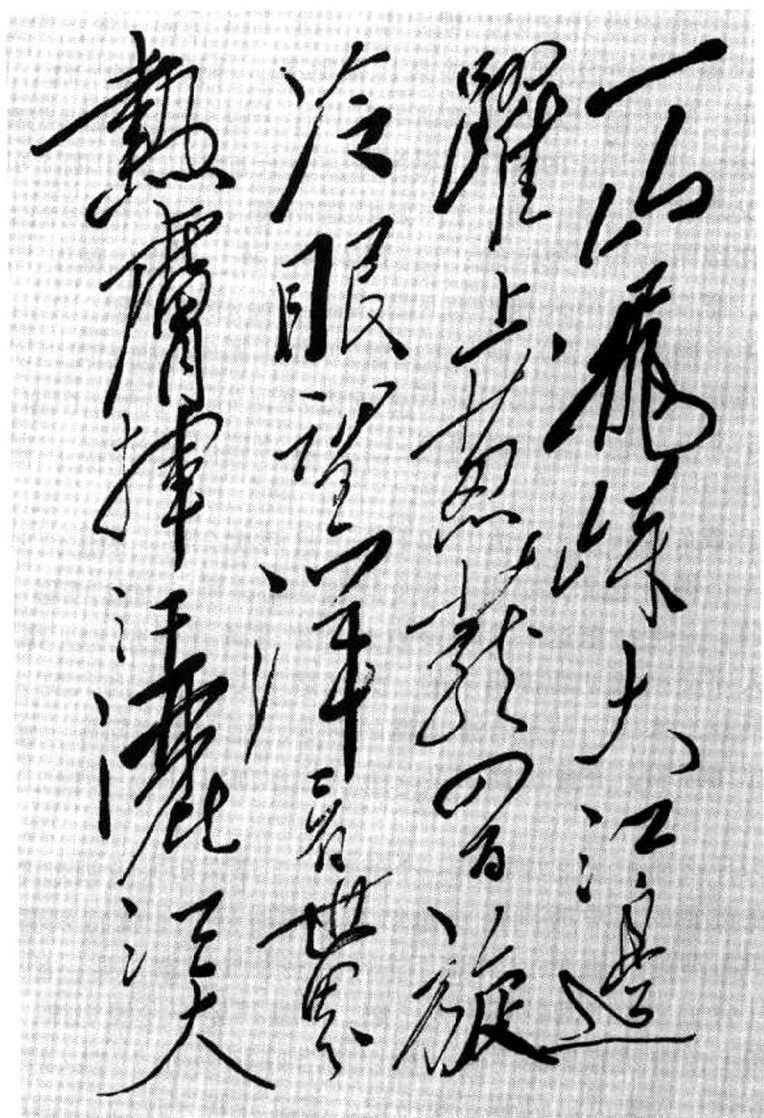 一山飛峙大江邊
躍上葱蘢四百旋
冷眼望洋看世界
熱膚揮汗灑江天